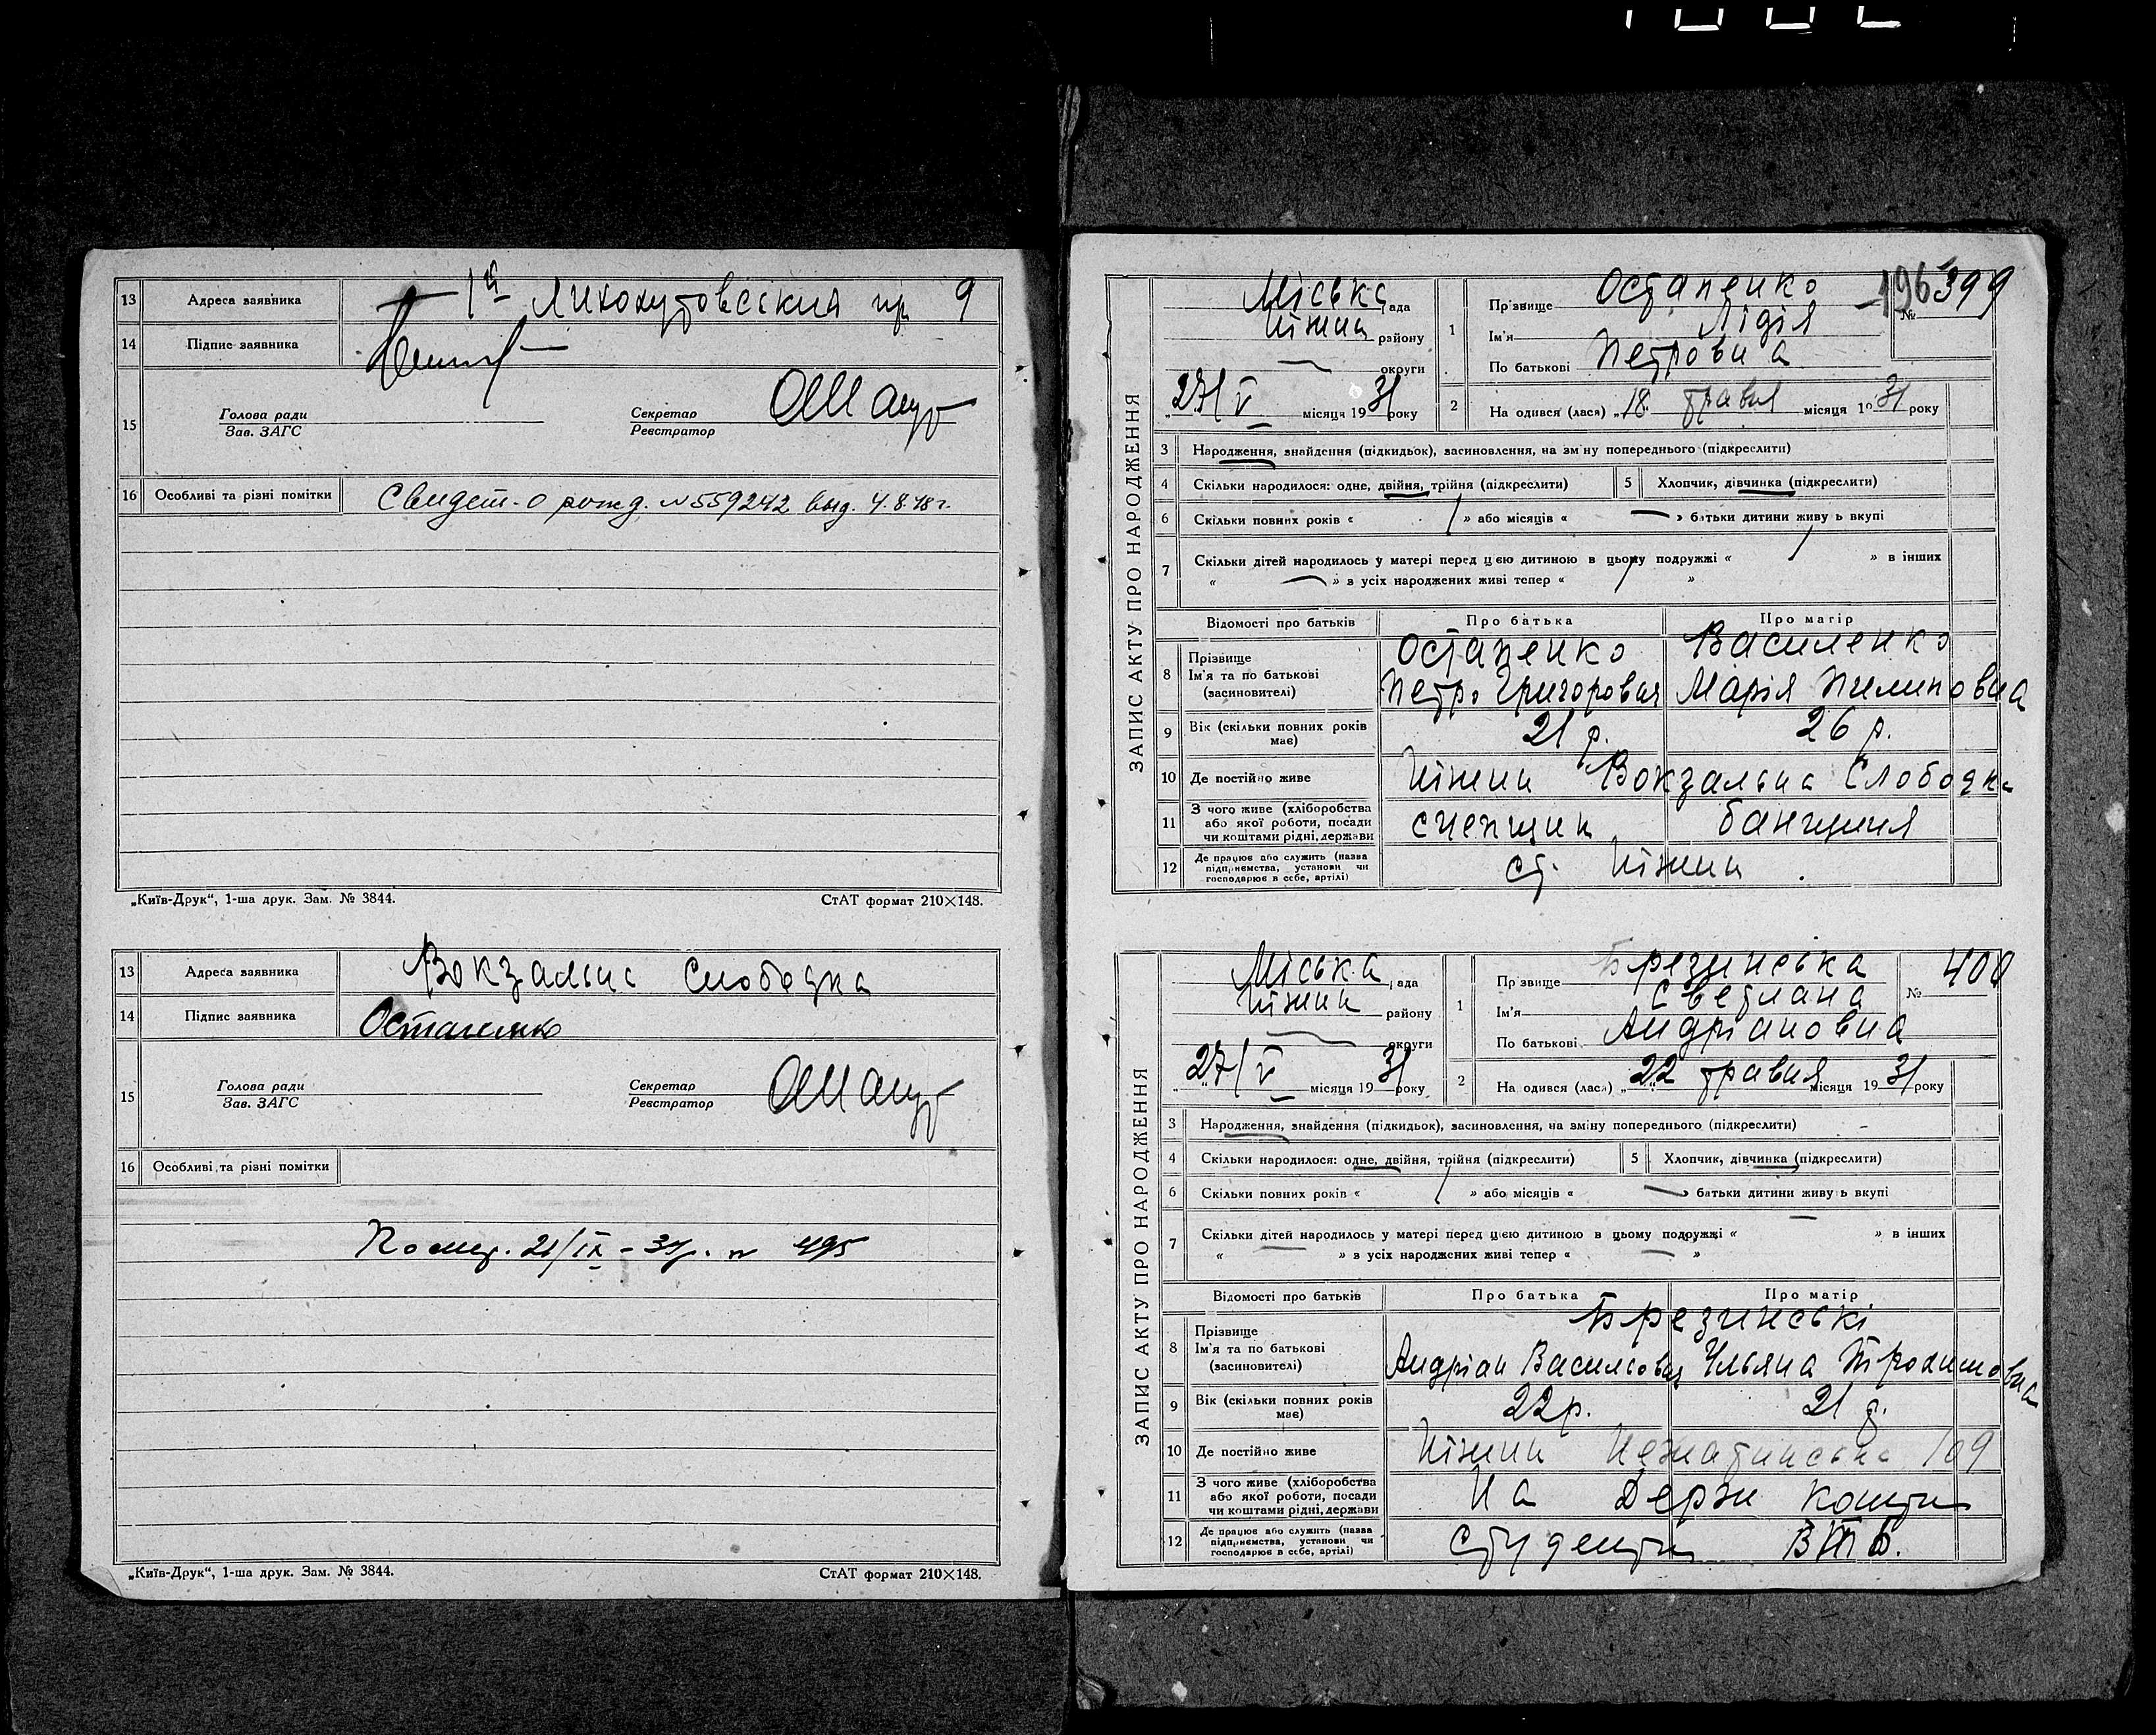 13 Адреса заявника 1й Лихохутовсский пр 9
14 Підпис заявника
15 Голова ради
Зав. ЗАГС
Секретар
Реєстратор
16 Особливі та різні помітки Свидет-о рожд. № 559242 выд. 4.8.48г.
„Київ-Друк“, 1-ша друк. Зам. № 3844. СтАТ формат 210×148.
13 Адреса заявника Вокзальна Слободка
14 Підпис заявника Остапенко
15 Голова ради
Зав. ЗАГС
Секретар
Реєстратор
16 Особливі та різні помітки
21/IX - 31р. № 495
„Київ-Друк“, 1-ша друк. Зам. № 3844. СтАТ формат 210×148.
ЗАПИС АКТУ ПРО НАРОДЖЕННЯ
Міська рада
Ніжин району
округи
27/V місяця 1931 року
1 Прізвище Остапенко
Ім'я Лідія
По батькові Петровна
196 № 399
2 Народився (лася) „18 травня місяця 1931 року
3 Народження, знайдення (підкидьок), засиновлення, на зміну попереднього (підкреслити)
4 Скільки народилося: одне, двійня, трійня (підкреслити) 5 Хлопчик, дівчинка (підкреслити)
6 Скільки повних років « » або місяців « — » батьки дитини живуть вкупі
7 Скільки дітей народилось у матері перед цією дитиною в цьому подружжі « » в інших
« — » з усіх народжених живі тепер « »
Відомості про батьків Про батька Про матір
8 Прізвище
Ім'я та по батькові
(засиновителі)
Остапенко
Петро Григорович
Василенко
Марія Пилиповна
9 Вік (скільки повних років має) 21 р. 26 р.
10 Де постійно живе Ніжин Вокзальна Слободка
11 З чого живе (хліборобства
або якої роботи, посади
чи коштами рідні, держави
счепщик банщиця
12 Де працює або служить (назва
підприємства, установи чи
господарює в себе, артілі)
ст. Ніжин
ЗАПИС АКТУ ПРО НАРОДЖЕННЯ
Міська рада
Ніжин району
округи
27/V місяця 1931 року
1 Прізвище Брезинська
Ім'я Светлана
По батькові Андріановна
№ 400
2 Народився (лася) „22 травня місяця 1931 року
3 Народження, знайдення (підкидьок), засиновлення, на зміну попереднього (підкреслити)
4 Скільки народилося: одне, двійня, трійня (підкреслити) 5 Хлопчик, дівчинка (підкреслити)
6 Скільки повних років « » або місяців « — » батьки дитини живуть вкупі
7 Скільки дітей народилось у матері перед цією дитиною в цьому подружжі « — » в інших
« — » з усіх народжених живі тепер « — »
Відомості про батьків Про батька Про матір
8 Прізвище
Ім'я та по батькові
(засиновителі)
Брезинські
Андріан Васильович Ульяна Трохимовна
9 Вік (скільки повних років має) 22 р. 21 р.
10 Де постійно живе Ніжин 109
11 З чого живе (хліборобства
або якої роботи, посади
чи коштами рідні, держави
На Держ кошти
12 Де працює або служить (назва
підприємства, установи чи
господарює в себе, артілі)
студенти